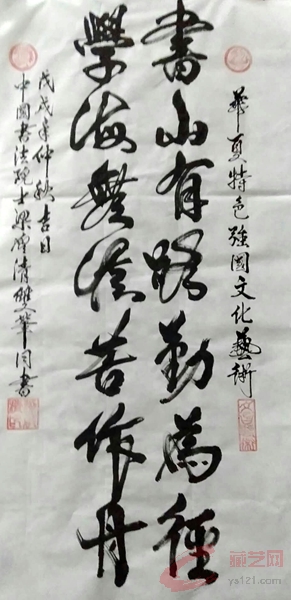 華夏特色強國文化藝術
書山有路勤為徑
學海無涯苦作舟
戊戌年仲秋吉日
中國書法院士梁清雙筆同書
藏艺网
ys121.com